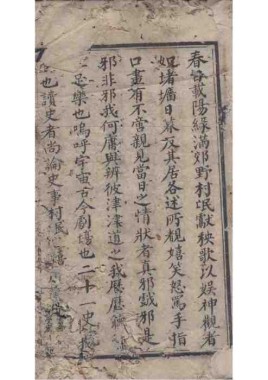 春台載陽綠滿郊野村氓獻秧歌以娛神觀者
如堵墻日暮反其居各述所覩嬉笑怒罵手指
口畫有不啻親見當日之情狀者真邪戲邪是
邪非邪我何庸與辨彼津津道之我歷歷聽
是樂也嗚呼宇宙古今劇塲也二十一史
也讀史者尚論史事村氓